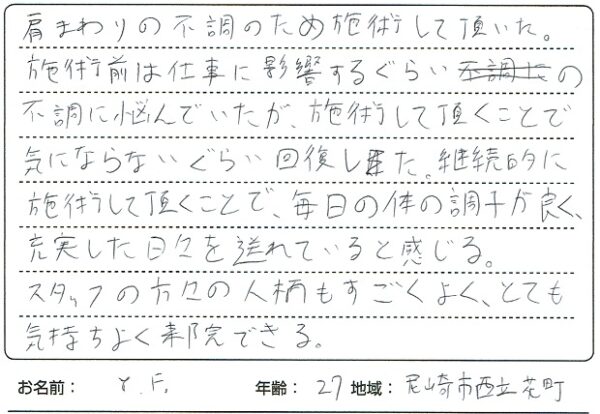 肩まわりの不調のため施術して頂いた。
施術前は仕事に影響するぐらい不調にの
不調に悩んでいたが、施術して頂くことで
気にならないぐらい回復した。継続的に
施術して頂くことで、毎日の体の調子が良く、
充実した日々を送れていると感じる。
スタッフの方々の人柄もすごくよく、とても
気持ちよく来院できる。
お名前： Y.F. 年齢： 27 地域： 尼崎市西立花町